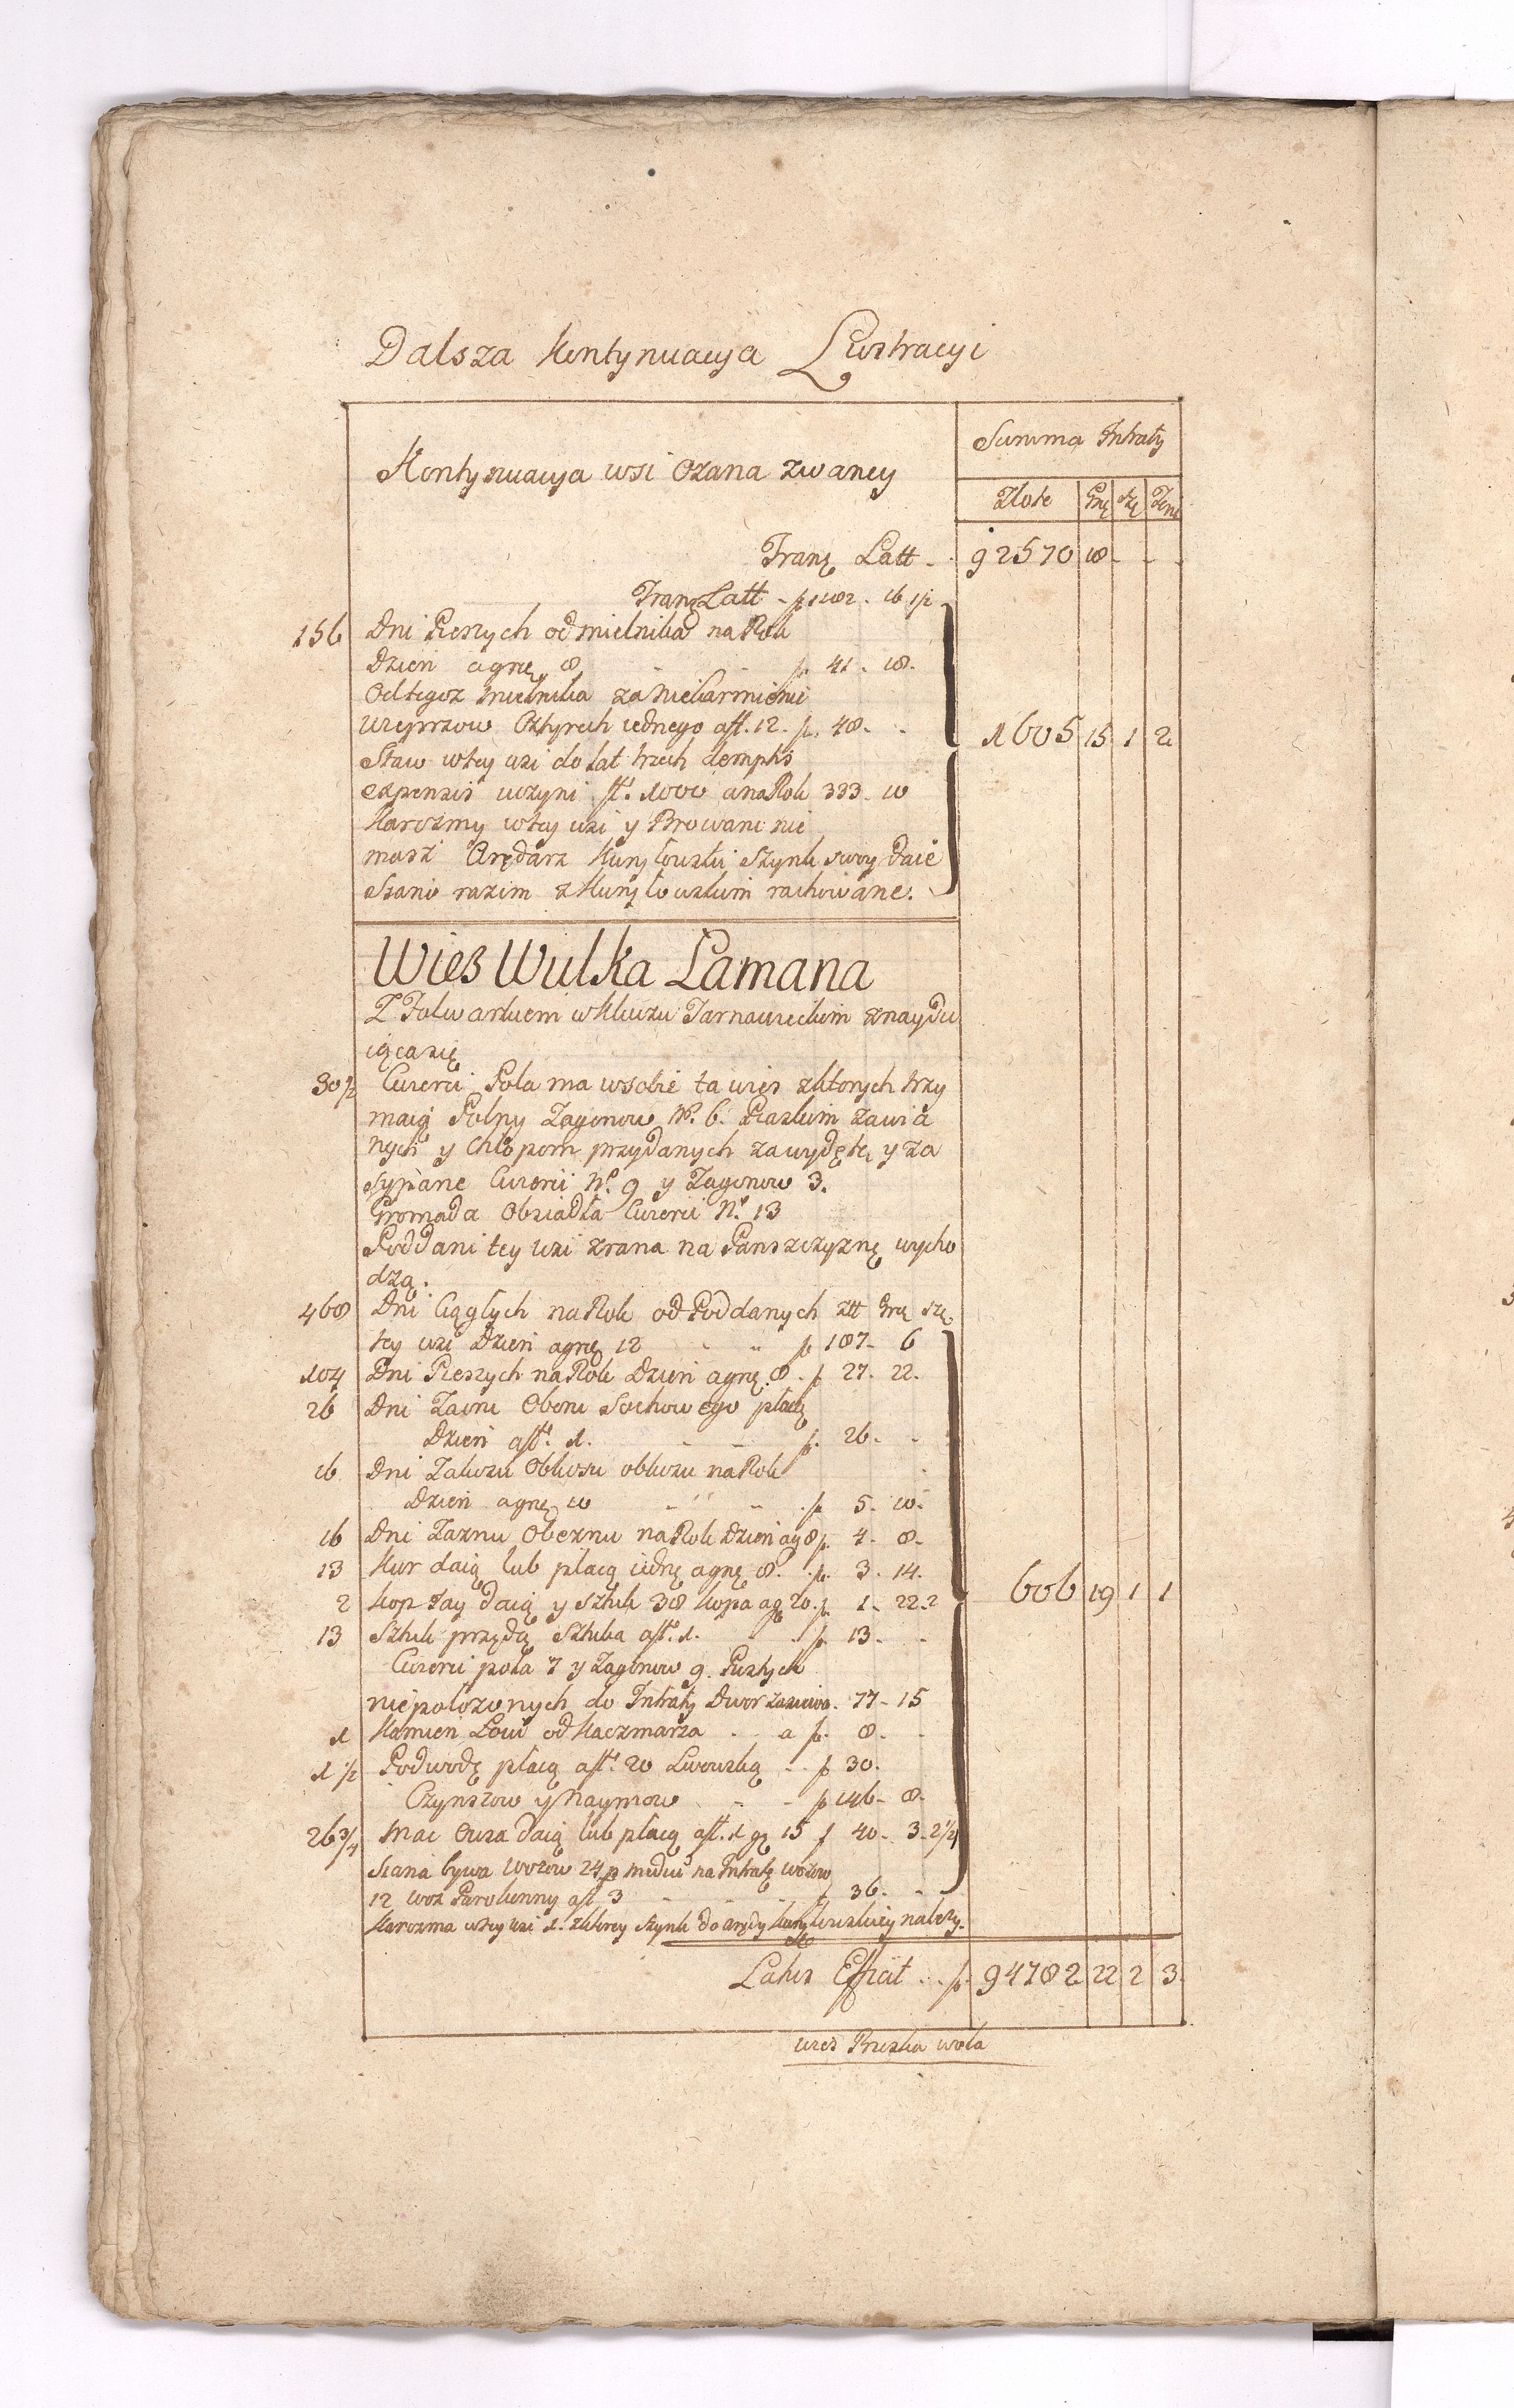 Dalsza Kontynuacya Lustracyi
Summa Intraty
Kontynuacya wsi Ozana zwaney
Złote Grę szę
Franę Latt - 92570 18 - -
Franę Latt - 16 1/2
156 Dni Pieszych od mielnika na Rok
Dzien agrę 8 - - p 41 - 18 -
Od tegoz mielnika za
wieprzow Cztyrech iednego aft. 12 - p. 48 - -
1605 15 1 2
Staw wtey wsi do lat trzech demptis
expensis uczyni ft. 1000 a na Rok 333 - 10
Karczmy wtey wsi y Browaru nie
masz Arędarz Kuryłowski szynk swoy daie
Siano razim z Kuryłowskim rachowane.
Wies Wulka Łamana
Z Folwarkiem w Kluczu Tarnawieckim znaydu
iąca się
30 1/2 Cwierci Pola ma wsobie ta wies z ktorych trzy
maią Zagonow No. 6. Piaskim zawia
nych y chłopom przydanych za wydętą y za
sypane Cwierci No. 9 y Zagonow 3.
Gromada Obsiadła Cwierci No. 13
Poddani tey wsi zrana na Panszczyznę wycho
dzą.
468 Dni Ciągłych na Rok od Poddanych złt Grę szę
tey wsi Dzien agrę 12 - - p 187 - 6
104 Dni Pieszych na Rok Dzien agrę. 8 - p 27 - 22 -
26 Dni Zaoru Oboru Sochowego płacą
Dzien aft. 1. - - p. 26 - -
16 Dni Zakozu Obkosu na Rok
Dzien agrę 10 - - p 5 - 10 -
16 Dni Zaznu Obeznu na Rok Dzien ag 8 p. 4 - 8 -
13 Kur daią lub płacą iednę agrę 8. p. 3 - 14.
2 Kop Jay daią y sztuk 38 kopa ag 20. p. 1 - 22 - 2
606 19 1 1
13 Sztuk przędą Sztuka aft. 1. - p. 13 - -
Cwierci pola 7 y Zagonow 9. Pustych
niepołozonych do Intraty Dwor zasiewa. 77 - 15
1 Kamien Łoiu od Kaczmarza - a p. 8 - -
1 1/2 Podwodę płacą aft. 20 Lwowską - p 30.
Czynszow y Naymow - - p 146 - 8 -
26 3/4 Mac Owsa daią lub płacą aft. 1 gę 15 f 40 - 3 - 2 1/2
Siana bywa Wozow 24 p medium na Intratę wozow
12 woz Parokonny aft 3 - - - f 36 - -
Karczma wtey wsi 1. z ktorey szynk do arędy Kuryłowskiey nalezy.
Latus Efficit - p. 94782 22 2 3
wies Bruska wola